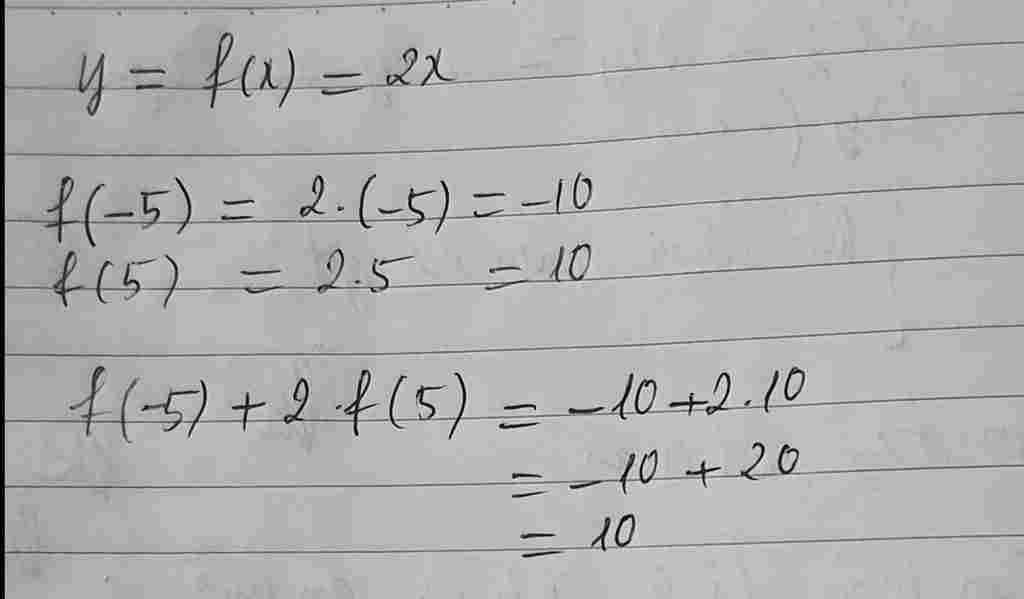 y = f(x) = 2x
f(-5) = 2.(-5) = -10
f(5) = 2.5 = 10
f(-5) + 2.f(5) = -10 + 2.10
= -10 + 20
= 10